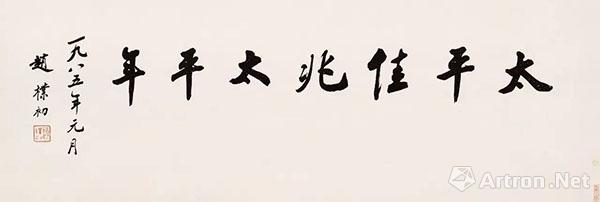 太平佳兆太平年
一九八五年元月
趙樸初
Artron.Net